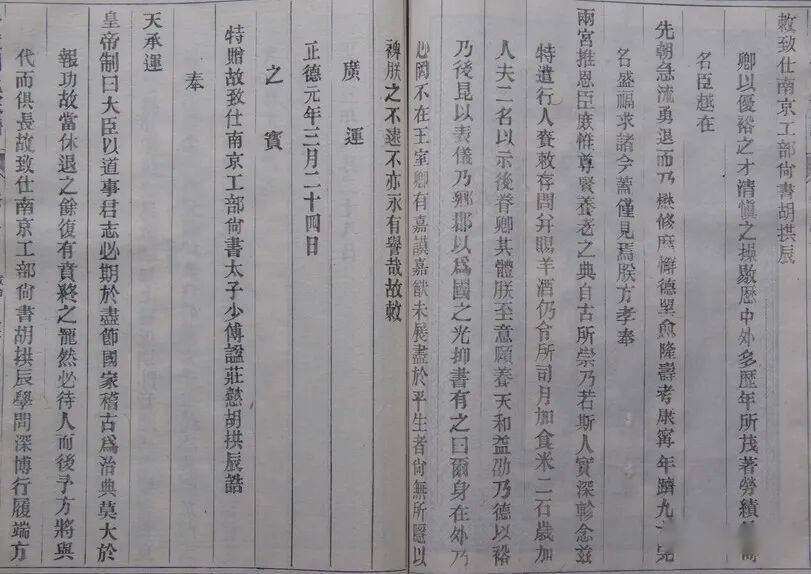 敕致仕南京工部尙書胡拱辰
卿以優裕之才淸愼之操敭歷中外多歷年所茂著勞績
名臣越在
先朝急流勇退而乃懋修靡懈德望愈隆壽考康寧年躋九
名盛福求諸今蓋僅見焉朕方孝奉
兩宮推恩臣庶惟尊賢養老之典自古所崇乃若斯人實深軫念茲
特遣行人賚敕存問幷賜羊酒仍令所司月加食米二石歲加
人夫二名以示後眷卿其體朕至意願養天和益劭乃德以裕
乃後昆以表儀乃鄕郡以爲國之光抑書有之曰爾身在外乃
心罔不在王室卿有嘉謨嘉猷未展盡於平生者尙無所隱以
裨朕之不逮不亦永有譽哉故敕
廣運
正德元年三月二十四日
之寶
特贈故致仕南京工部尙書太子少傅謚莊懿胡拱辰誥
奉
天承運
皇帝制曰大臣以道事君志必期於盡節國家稽古爲治典莫大於
報功故當休退之餘復有賁終之寵然必待人而後予方將與
代而俱長故致仕南京工部尙書胡拱辰學問深博行履端方